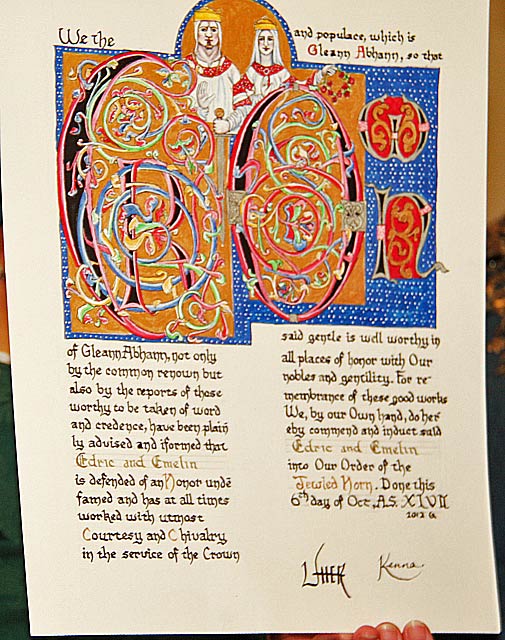 We the
CROWN
of Gleann Abhann, not only
by the common renown but
also by the reports of those
worthy to be taken of word
and credence, have been plain
ly advised and iformed that
Edric and Emelin
is defended of an Honor undē
famed and has at all times
worked with utmost
Courtesy and Chivalry
in the service of the Crown
and populace, which is
Gleann Abhann, so that
said gentle is well worthy in
all places of honor with Our
nobles and gentility. For re-
membrance of these good works
We, by our Own hand, do her
eby commend and induct said
Edric and Emelin
into Our Order of the
Jeweled Horn. Done this
6th day of Oct, A.S. XLVII
2012 G.
Kenna